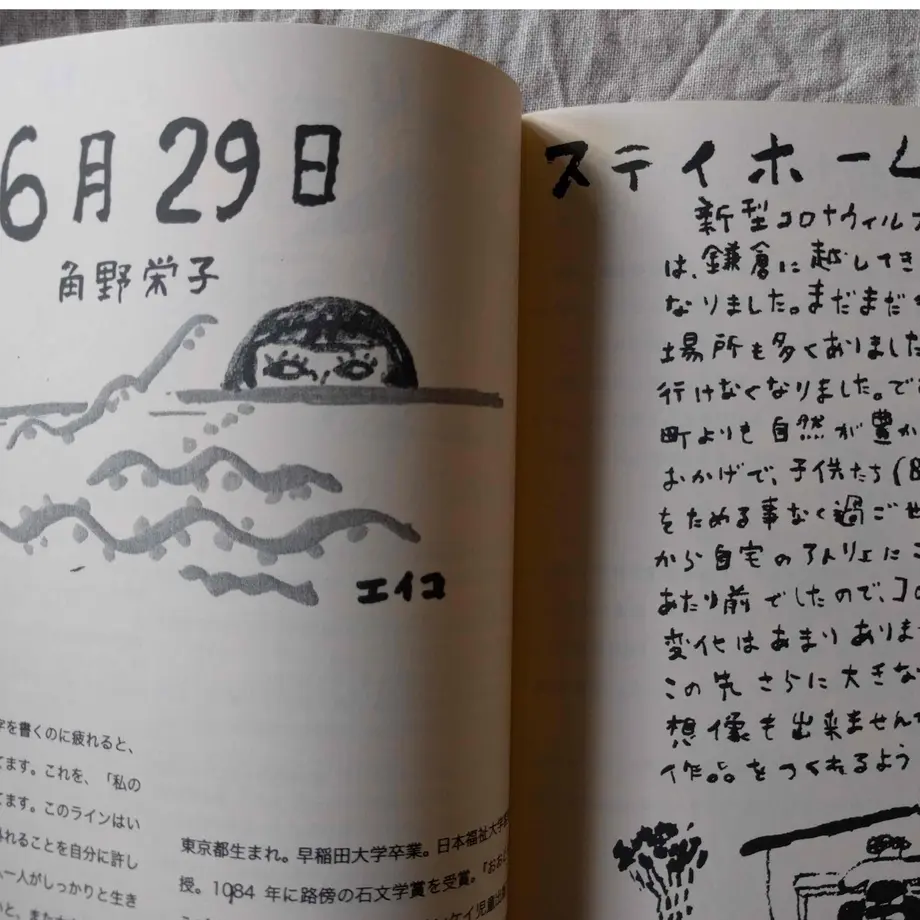 6月29日
角野栄子
エイコ
字を書くのに疲れると、
てます。これを、「私の
てます。このラインはい
れることを自分に許し
一人がしっかりと生き
東京都生まれ。早稲田大学卒業。日本福祉大学
授。1984 年に路傍の石文学賞を受賞。「おお
ステイホーム
新型コロナウィルス
は、鎌倉に越してき
なりました。まだまだ
場所も多くありました
行けなくなりました。で
町よりも自然が豊か
おかげで、子供たち(8
をためる事なく過ごせ
から自宅のアトリエにこ
あたり前でしたので、コロ
変化はあまりありま
この先さらに大きな
想像も出来ませんで
作品をつくれるよう